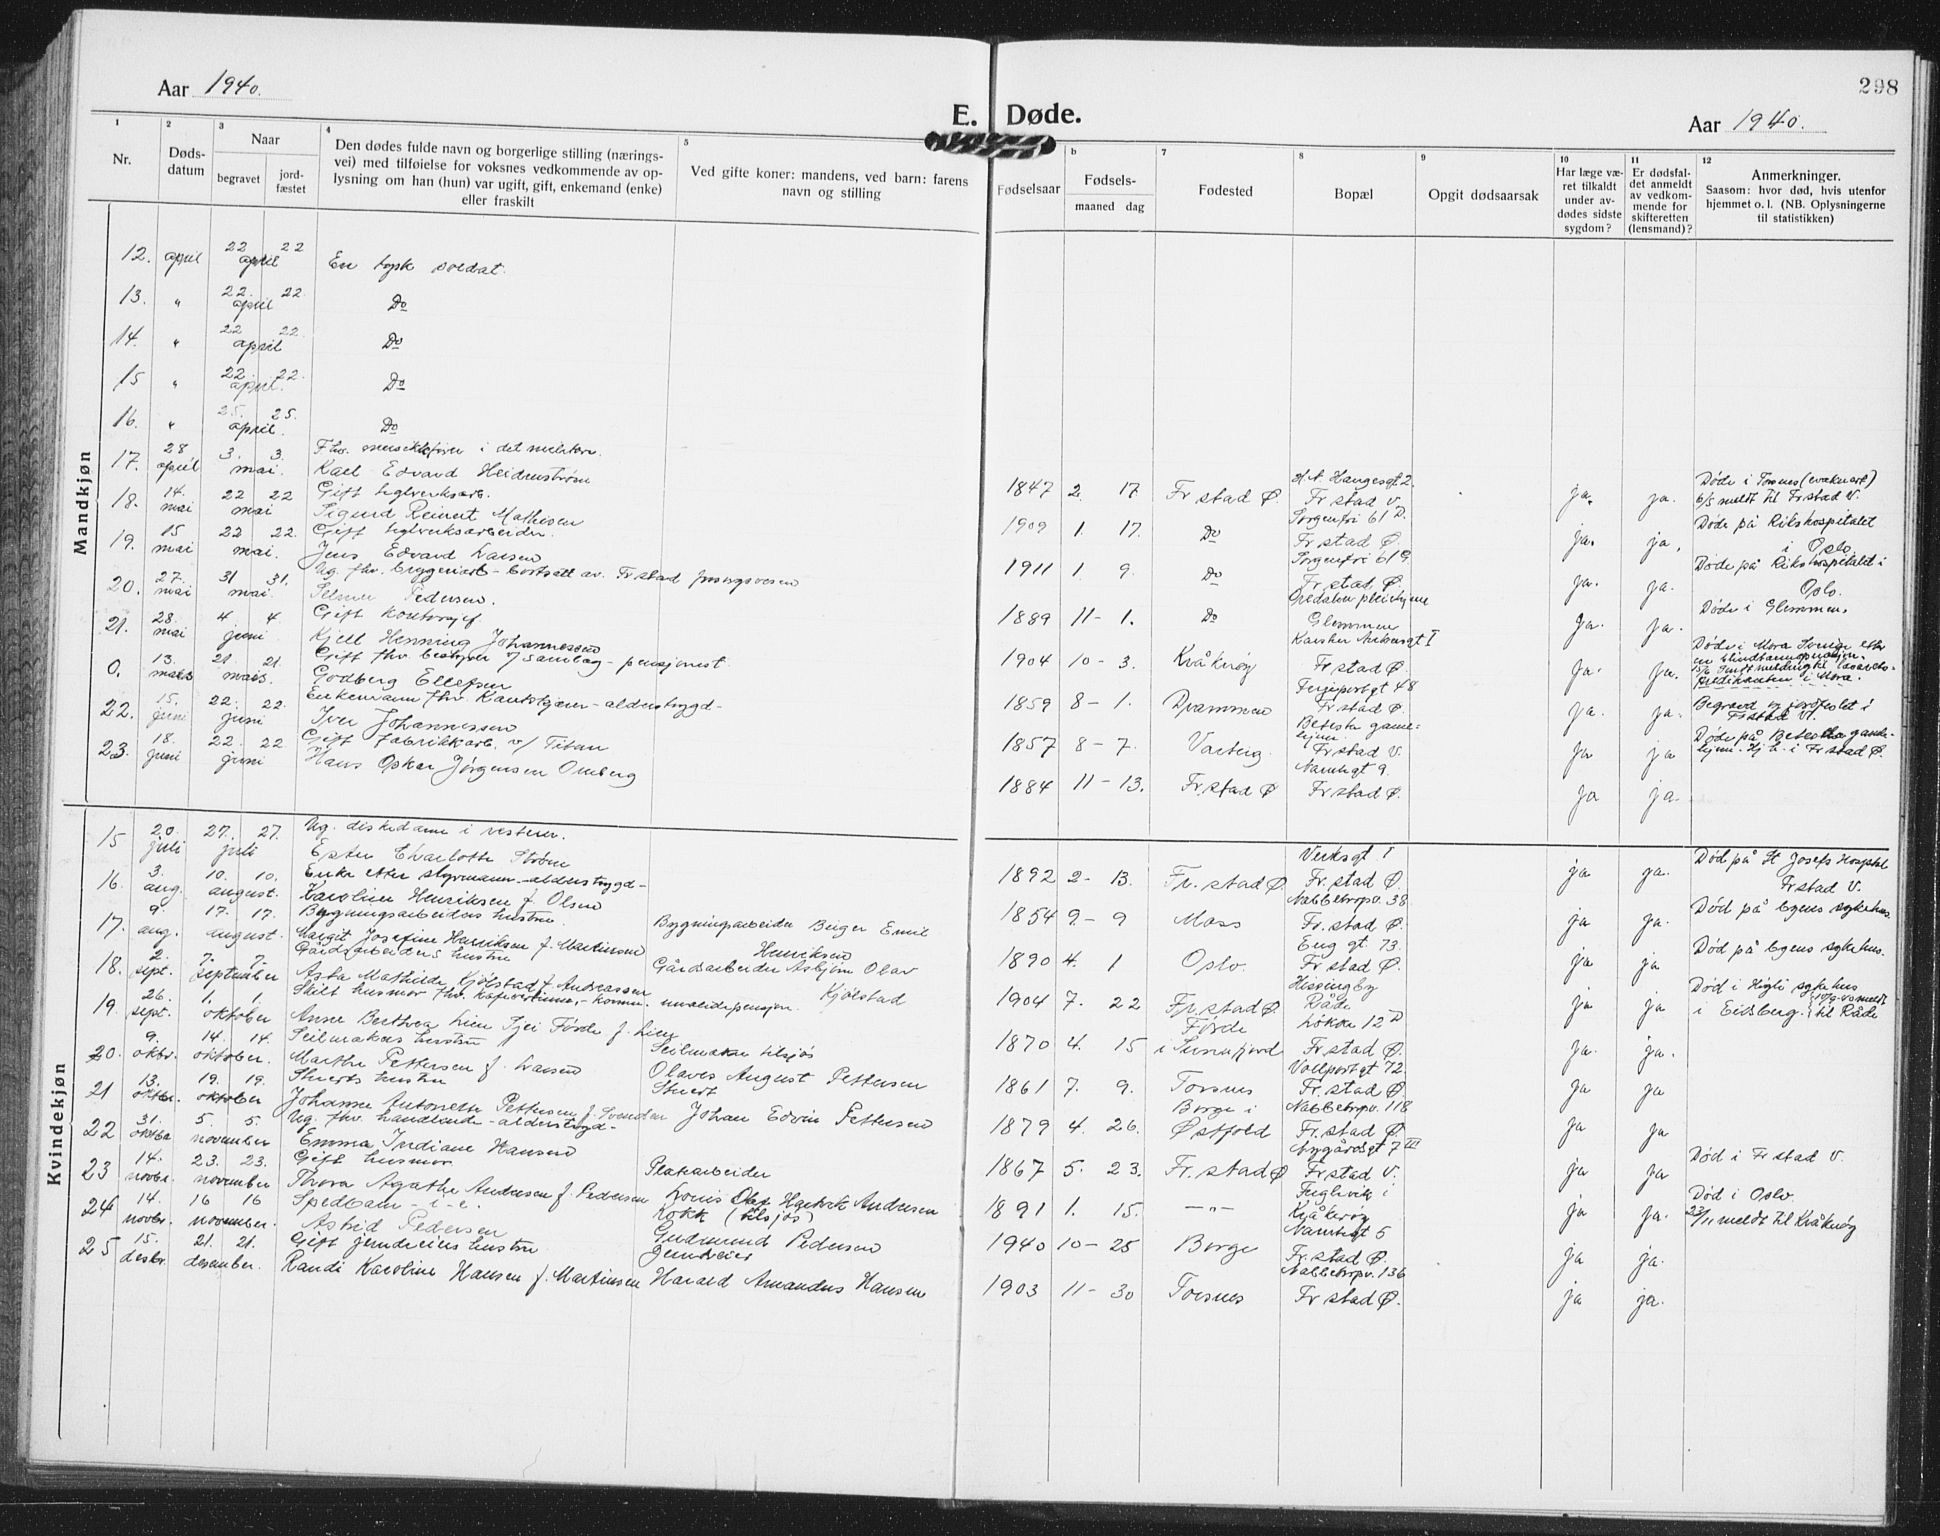 Aar 1940.
298
E. Døde.
Aar 1940.
1
Nr.
2
Døds-
datum
3
Naar
begravet
jord-
fæstet
4
Den dødes fulde navn og borgerlige stilling (nærings-
vei) med tilføielse for voksnes vedkommende av op-
lysning om han (hun) var ugift, gift, enkemand (enke)
eller fraskilt
5
Ved gifte koner: mandens, ved barn: farens
navn og stilling
Fødselsaar
b
Fødsels-
maaned dag
7
Fødested
8
Bopæl
9
Opgit dødsaarsak
10
Har læge væ-
ret tilkaldt
under av-
dødes sidste
sygdom?
11
Er dødsfal-
det anmeldt
av vedkom-
mende for
skifteretten
(lensmand)?
12
Anmerkninger.
Saasom: hvor død, hvis utenfor
hjemmet o. l. (NB. Oplysningerne
til statistikken)
Mandkjøn
12. april 22 april 22 En tysk soldat.
13. " 22. april 22. Do
14. " 22 april 22. Do
15 " 22. april. 22. Do
16. " 25. april. 25. Do
17. 28 april 3. mai. 3. Fhv. i det militære.
Karl Edvard Heidenstrøm
1847 2. 17 Fr stad Ø. H.N. Haugesgt 2. Fr stad V. ja. ja. Døde i Torsnes (evakuert)
6/5 meldt til Fr stad V.
18. 14. mai 22 mai 22 Gift teglverksarb.
Sigurd Reinert Mathisen
1909 1. 17. Do Sorgenfri 61 D. Fr stad Ø. ja. ja. Døde på Rikshospitalet
i Oslo
19. 15 mai 22 mai. 22. Gift teglverksarbeider.
Jens Edvard Larsen
1911 1. 9. Do Sorgenfri 61 Fr stad Ø. ja. ja. Døde på Rikshospitalet i
Oslo.
20. 27. mai 31 mai. 31. Ug. fhv. bryggeriarb - bortsatt av Fr stad forsorgsvesen
Selmer Pedersen.
1889 11 - 1. Do pleiehjem Glemmen ja. ja. Døde i Glemmen.
21. 28. mai 4. juni 4. Gift kontorsjef
Kjell Henning Johannessen
1904 10 - 3. Kråkerøy Karsten Ankersgt I Fr stad Ø. ja. ja. Døde i Mora Sverige etter
en blindtarmoperasjon.
i Mora.
0. 13. mars 21. mars. 21. Gift fhv. bestyrer v/ samlag - pensjonist.
Godberg Ellefsen
1859 8 - 1. Drammen Fergeportgt 48 Fr stad Ø. ja. ja. Begravd og jordfestet i
Fr stad V.
22. 15. juni 22. juni 22. Enkemann fhv. - alderstrygd -
Iver Johannessen
1857 8 - 7. Varteig. Betesta gamle-
hjem. Fr stad V. ja ja Døde på Betesta gamle-
hjem. i Fr stad Ø.
23. 18. juni 22. juni 22. Gift fabrikkarb. v/ Titan
Hans Oskar Jørgensen Omberg
1884 11 - 13. Fr. stad Ø 9. Fr stad Ø. ja ja.
Kvindekjøn
15 20. juli 27. juli 27. Ug. diskedame i
Ester Charlotte Strøm
1892 2 - 13. Fr. stad Ø. Verksgt 1 Fr. stad Ø. ja ja. Død på St Josefs Hospital
Fr stad V.
16. 3. aug. 10. august. 10. Enke etter styrmann - alderstrygd -
Karoline Henriksen f. Olsen
1854 9 - 9 Moss Nabbetorpv. 38 Fr. stad Ø. ja ja. Død på byens sykehus.
17. 9. aug. 17. august. 17. Bygningsarbeiders hustru
Margit Josefine Henriksen f. Martinsen
Bygningsarbeider Birger Emil
Henriksen
1890 4. 1 Oslo. Eng gt. 73. Fr stad Ø. ja ja Død på byens sykehus.
18. 2. sept. 7. september 7. Gårdsarbeiders hustru
Asta Mathilde Kjølstad f. Andreassen
Gårdsarbeider Asbjørn Olav
Kjølstad
1904 7. 22 Fr. stad Ø. Hissingby Råde ja ja Død i sykehus
i Eidsberg. 10/9-40 meldt til Råde
19. 26. sept. 1. oktober 1. Skilt husmor fhv. - komm. invalidepensjon.
Anne Berthea Lien Førde f. Lien
1870 4. 15 Førde i Sunnfjord Løkka 12 D Fr. stad Ø. ja. ja.
20. 9. oktbr. 14. oktober. 14. Seilmakers hustru
Marthe Pettersen f. Larsen
Seilmaker tilsjøs
Olaves August Pettersen
1861 7. 9. Torsnes Vollportgt 72. Fr. stad Ø. ja ja
21 13. oktbr. 19. oktober 19. Stuerts hustru
Johanne Antonette Pettersen f. Svendsen
Stuert
Johan Edvin Pettersen
1879 4. 26. Borge i Østfold Nabbetorpv. 118 Fr. stad Ø. ja ja
22 31. 5. november 5. Ug. fhv. handlende - alderstrygd -
Emma Indiane Hansen
1867 5. 23. Fr. stad Ø Nygårdsgt 7 III Fr stad V. ja ja Død i Fr stad V.
23 14. novbr. 23. november 23. Gift husmor
Thora Agathe Andersen f. Pedersen
Platearbeider
Louis Olaf Andersen
1891 1. 15. -"- Fuglevik i Kråkerøy ja ja. Død i Oslo.
23/11 meldt til Kråkerøy
24 14. novbr. 16 november. 16 Spedbarn - i - e.
Astrid Pedersen
Kokk (tilsjøs)
Gudmund Pedersen
1940 10 - 25 Borge 5 Fr. stad Ø. ja ja.
25 15. desbr. 21. desember. 21. Gift jernd
Randi Karoline Hansen f. Martinsen
Harald Amandus Hansen
1903 11 - 30 Torsnes Nabbetorpv. 136 Fr stad Ø. ja ja.